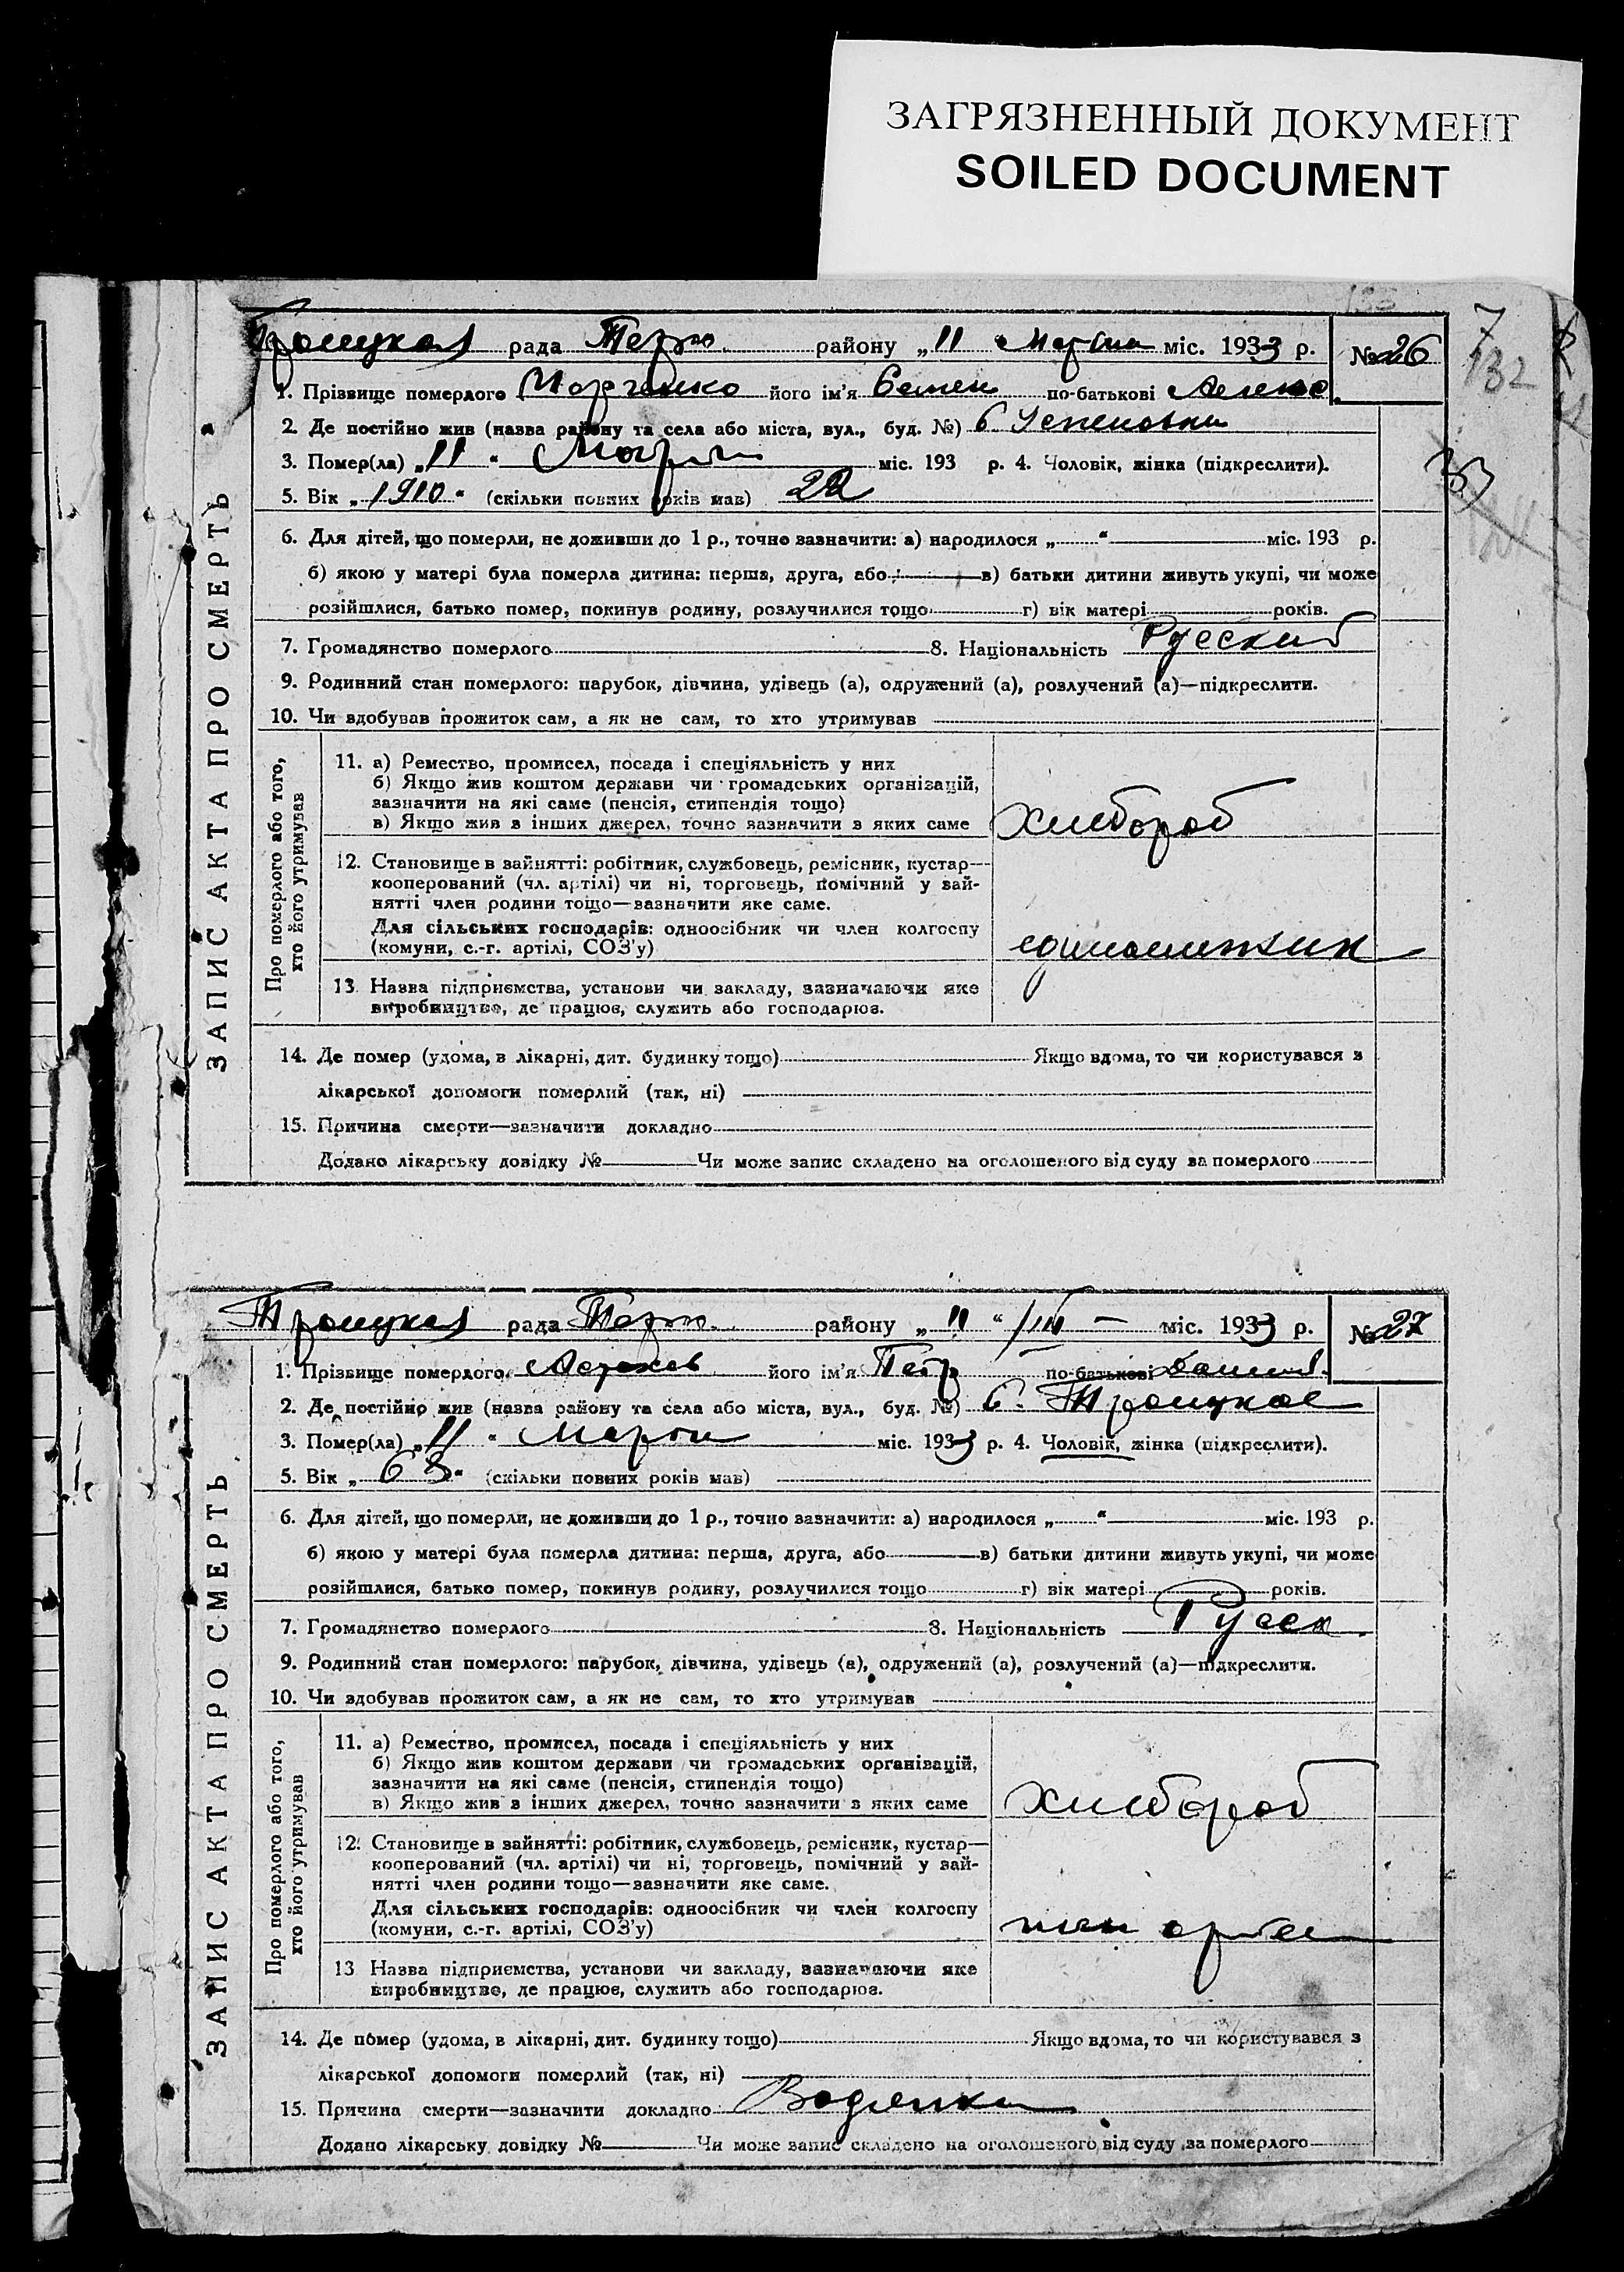 ЗАГРЯЗНЕННЫЙ ДОКУМЕНТ
SOILED DOCUMENT
132
ЗАПИС АКТА ПРО СМЕРТЬ
Троицкая рада района „11“ Марта міс. 1933 р. № 26
1. Прізвище померлого його ім'я Семен по-батькові
2. Де постійно жив (назва району та села або міста, вул., буд. №) с. Успеновка
3. Помер(ла) „11“ Марта міс. 193 р. 4. Чоловік, жінка (підкреслити).
5. Вік „1910“ (скільки повних років мав) 22
6. Для дітей, що померли, не доживши до 1 р., точно зазначити: а) народилося „ “ міс. 193 р.
б) якою у матері була померла дитина: перша, друга, або в) батьки дитини живуть укупі, чи може
розійшлися, батько помер, покинув родину, розлучилися тощо г) вік матері років.
7. Громадянство померлого 8. Національність Русский
9. Родинний стан померлого: парубок, дівчина, удівець (а), одружений (а), розлучений (а)—підкреслити.
10. Чи здобував прожиток сам, а як не сам, то хто утримував
Про померлого або того, хто його утримував
11. а) Ремество, промисел, посада і спеціяльність у них
б) Якщо жив коштом держави чи громадських організацій,
зазначити на які саме (пенсія, стипендія тощо)
в) Якщо жив з інших джерел, точно зазначити з яких саме хлебороб
12. Становище в зайнятті: робітник, службовець, ремісник, кустар—
кооперований (чл. артілі) чи ні, торговець, помічний у зай-
нятті член родини тощо—зазначити яке саме.
Для сільських господарів: одноосібник чи член колгоспу
(комуни, с.-г. артілі, СОЗ'у) единоличник
13. Назва підприємства, установи чи закладу, зазначаючи яке
виробництво, де працює, служить або господарює.
14. Де помер (удома, в лікарні, дит. будинку тощо) Якщо вдома, то чи користувався з
лікарської допомоги померлий (так, ні)
15. Причина смерти—зазначити докладно
Додано лікарську довідку № Чи може запис складено на оголошеного від суду за померлого
ЗАПИС АКТА ПРО СМЕРТЬ
Троицкая рада району „11“ /III – міс. 1933 р. № 27
1. Прізвище померлого Астахов його ім'я Петр по-батькові
2. Де постійно жив (назва району та села або міста, вул., буд. №) с. Троицкое
3. Помер(ла) „11“ Марта міс. 1933 р. 4. Чоловік, жінка (підкреслити).
5. Вік „63“ (скільки повних років мав)
6. Для дітей, що померли, не доживши до 1 р., точно зазначити: а) народилося „ “ міс. 193 р.
б) якою у матері була померла дитина: перша, друга, або в) батьки дитини живуть укупі, чи може
розійшлися, батько помер, покинув родину, розлучилися тощо г) вік матері років.
7. Громадянство померлого 8. Національність Русск
9. Родинний стан померлого: парубок, дівчина, удівець (а), одружений (а), розлучений (а)—підкреслити.
10. Чи здобував прожиток сам, а як не сам, то хто утримував
Про померлого або того, хто його утримував
11. а) Ремество, промисел, посада і спеціяльність у них
б) Якщо жив коштом держави чи громадських організацій,
зазначити на які саме (пенсія, стипендія тощо)
в) Якщо жив з інших джерел, точно зазначити з яких саме хлебороб
12. Становище в зайнятті: робітник, службовець, ремісник, кустар—
кооперований (чл. артілі) чи ні, торговець, помічний у зай-
нятті член родини тощо—зазначити яке саме.
Для сільських господарів: одноосібник чи член колгоспу
(комуни, с.-г. артілі, СОЗ'у) член артели
13 Назва підприємства, установи чи закладу, зазначаючи яке
виробництво, де працює, служить або господарює.
14. Де помер (удома, в лікарні, дит. будинку тощо) Якщо вдома, то чи користувався з
лікарської допомоги померлий (так, ні)
15. Причина смерти—зазначити докладно Водянка
Додано лікарську довідку № Чи може запис складено на оголошеного від суду за померлого